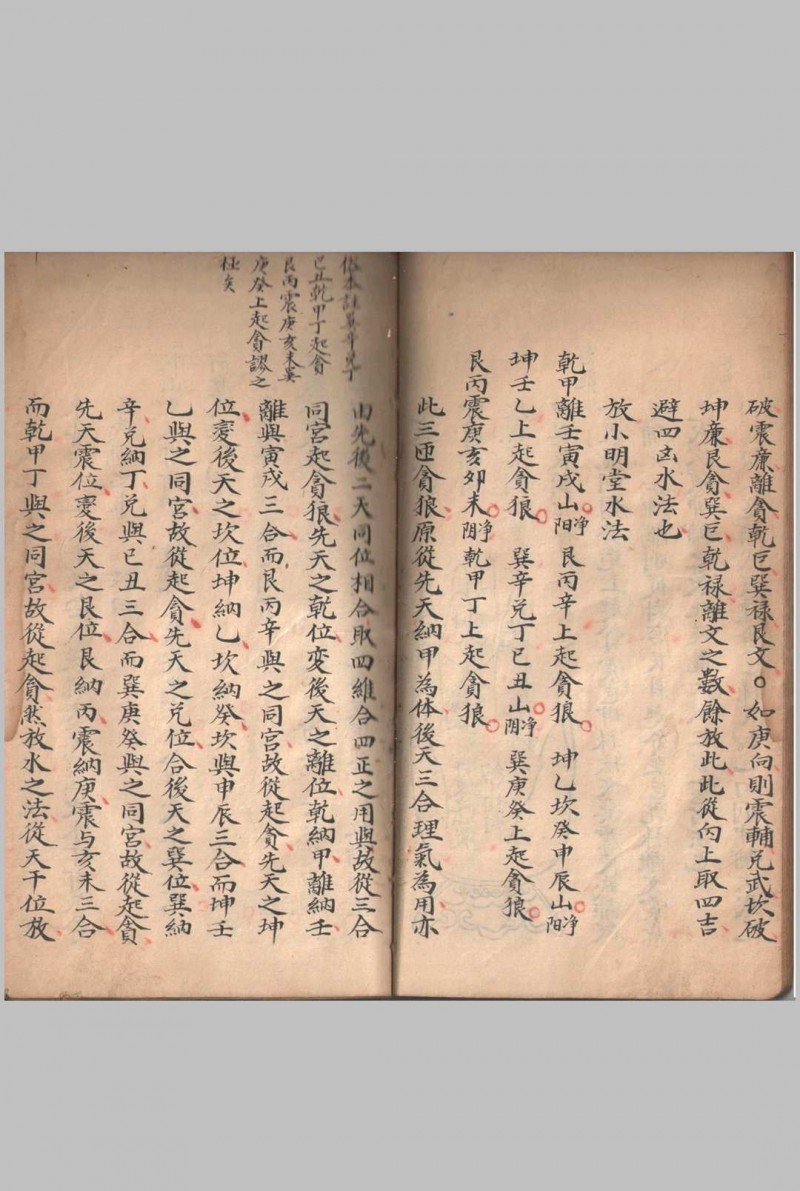 破震廉離貪乾巨巽祿艮文。如庚向則震輔兌武坎破
坤廉艮貪巽巨乾祿離文之数餘放此此從向上取四吉
避四凶水法也
放小明堂水法
乾甲離壬寅戌山净阳艮丙辛上起貪狼。坤乙坎癸申辰山净阳
坤壬乙上起貪狼。巽辛兌丁巳丑山净阴巽庚癸上起貪狼。
艮丙震庚亥夘未净阴乾甲丁上起貪狼。
此三匝貪狼原從先天納甲為体後天三合理氣為用亦
由先後二天同位相合取四維合四正之用與故從三合
同宮起貪狼先天之乾位变後天之離位乾納甲離納壬
離與寅戌三合而艮丙辛與之同宮故從起貪先天之坤
位变後天之坎位坤納乙坎納癸坎與申辰三合而坤壬
乙與之同宮故從起貪先天之兌位合後天之巽位巽納
辛兌納丁兌與巳丑三合而巽庚癸與之同宮故從起貪
先天震位变後天之艮位艮納丙震納庚震与亥未三合
而乾甲丁與之同宮故從起貪然放水之法從天干位放
巳丑乾甲丁起貪
艮丙震庚亥未巽
庚癸上起貪謬之
极矣